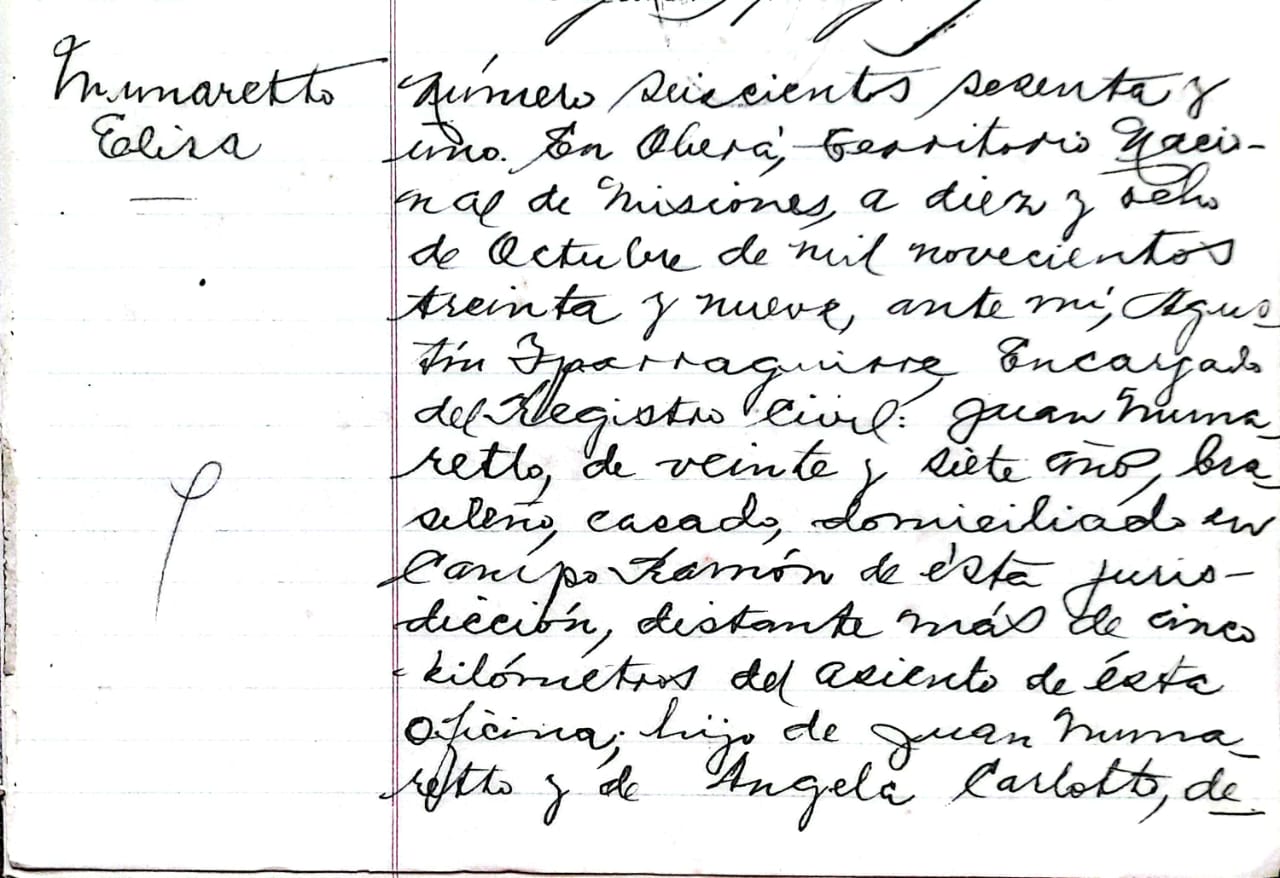 Munaretto
Elisa
Número seiscientos sesenta y
uno. En Oberá, Territorio Nacio-
nal de Misiones, a diez y ocho
de Octubre de mil novecientos
treinta y nueve, ante mí, Agus-
tín Yparraguirre, Encargado
del Registro Civil: Juan Muna-
retto, de veinte y siete años, bra-
sileño, casado, domiciliado en
Campo Ramón de ésta juris-
dicción, distante más de cinco
kilómetros del asiento de ésta
oficina; hijo de Juan Muna-
retto y de Angela Carlotto, de-